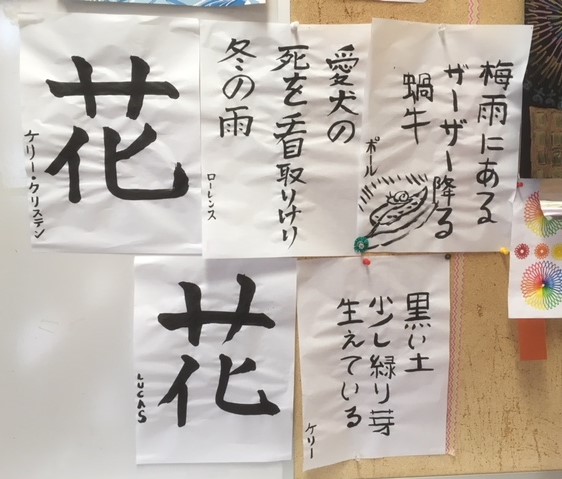 花
ケリー・クリステン
愛犬の
死を看取りけり
冬の雨
ローレンス
梅雨にある
ザーザー降る
蝸牛
ポール
花
LUCAS
黒い土
少し緑り芽
生えている
ケリー